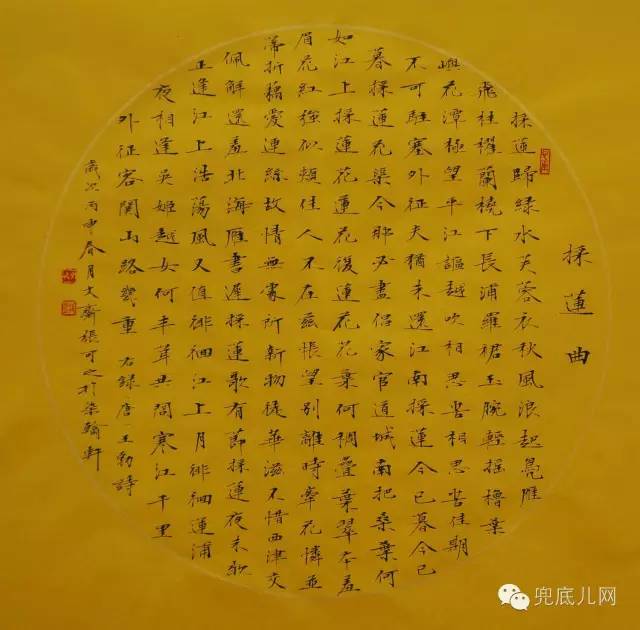 採蓮曲
採蓮歸綠水芙蓉衣秋風浪起鳧雁
飛桂櫂蘭橈下長浦羅裙玉腕輕搖櫓葉
嶼花潭極望平江謳越吹相思苦相思苦佳期
不可駐塞外征夫猶未還江南採蓮今已暮今已
暮採蓮花渠今那必盡侶家官道城南把桑葉何
如江上採蓮花蓮花後蓮花花葉何稠疊葉翠本羞
眉花紅強似頰佳人不在茲悵望別離時牽花憐並
蒂折藕愛連絲故情無處所新物徒華滋不惜西津交
佩解還羞北海雁書遲採蓮歌有節採蓮夜未歇
正逢江上浩蕩風又值徘徊江上月徘徊蓮浦
夜相逢吳姬越女何丰茸共問寒江千里
外征客關山路幾重 右錄唐王勃詩
歲次丙申春月文齋張可之於染翰軒
兜底儿网